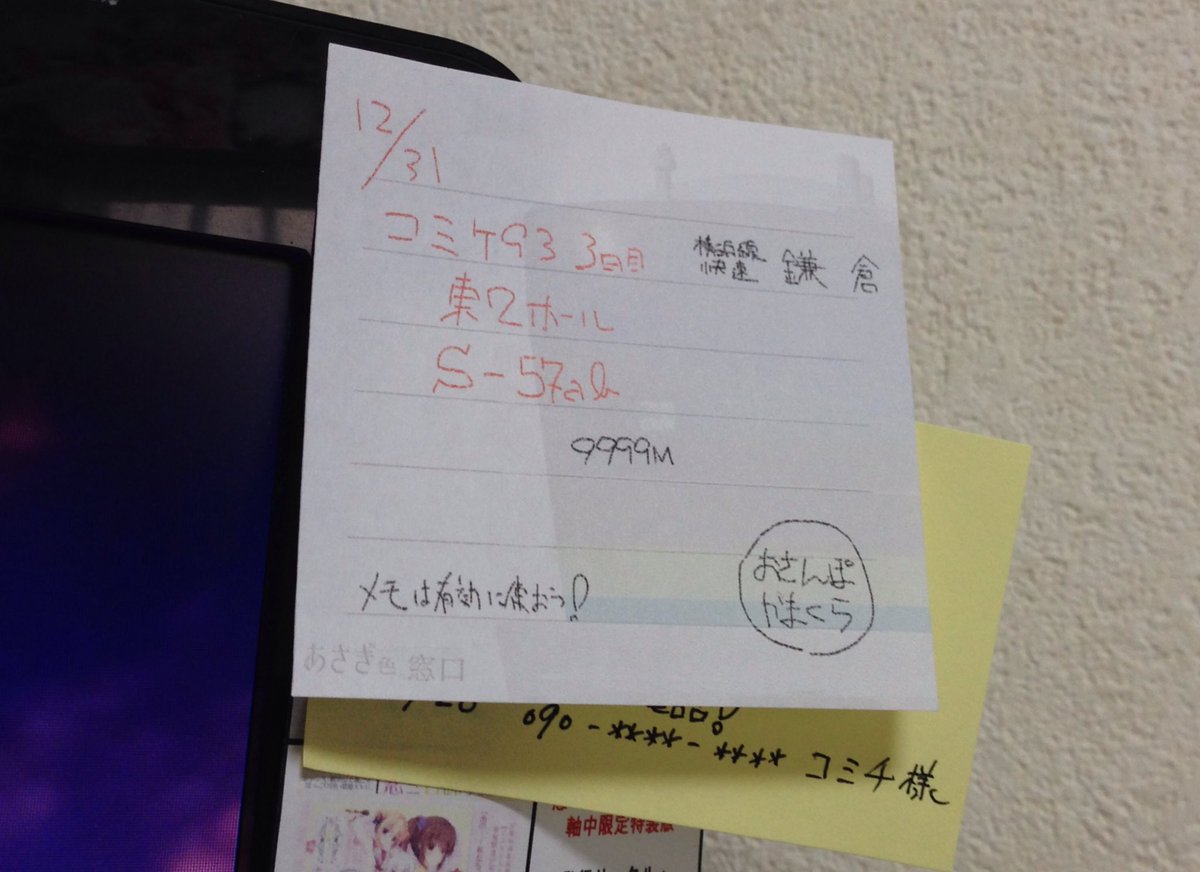 12/31
コミケ93 3日目
横浜線
快速
鎌倉
東2ホール
S-57ab
9999M
おさんぽ
かまくら
メモは有効に使おう!
あさぎ色 窓口
090-****-****
コミチ様
軸中限定特装版